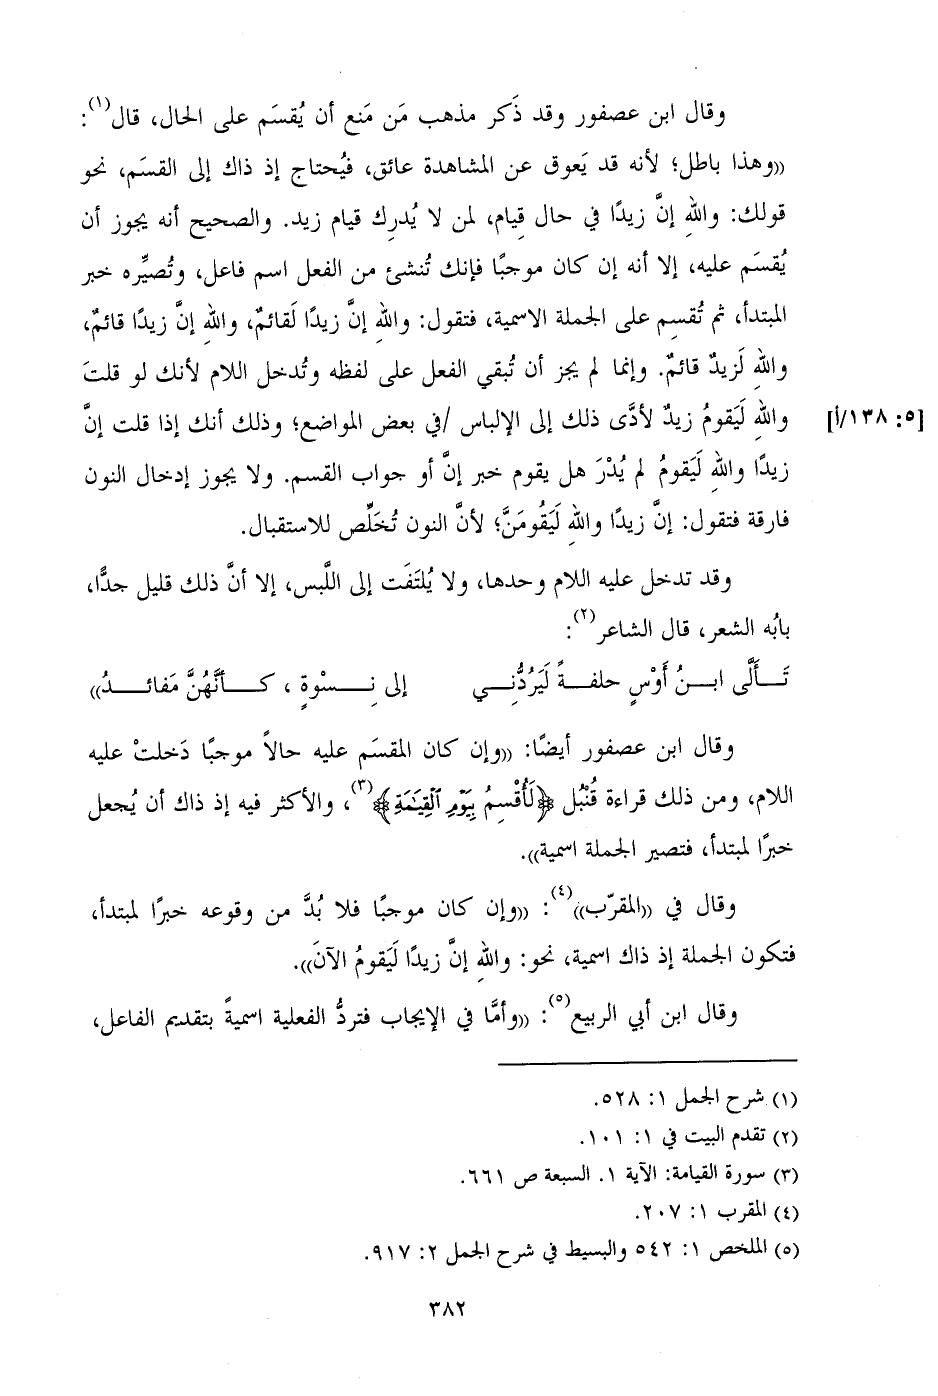 وقال ابن عصفور وقد ذَكر مذهب مَن مَنع أن يُقسَم على الحال، قال(١):
((وهذا باطل؛ لأنه قد يَعوق عن المشاهدة عائق، فيُحتاج إذ ذاك إلى القسَم، نحو
قولك: واللهِ إنَّ زيدًا في حال قيام، لمن لا يُدرِك قيام زيد. والصحيح أنه يجوز أن
يُقسَم عليه، إلا أنه إن كان موجبًا فإنك تُنشئ من الفعل اسم فاعل، وتُصيِّره خبر
المبتدأ، ثم تُقسِم على الجملة الاسمية، فتقول: واللهِ إنَّ زيدًا لَقائمٌ، واللهِ إنَّ زيدًا قائمٌ،
واللهِ لَزيدٌ قائمٌ. وإنما لم يجز أن تُبقي الفعل على لفظه وتُدخل اللام لأنك لو قلتَ
واللهِ لَيَقومُ زيدٌ لأدَّى ذلك إلى الإلباس /في بعض المواضع؛ وذلك أنك إذا قلت إنَّ [٥: ١٣٨/أ]
زيدًا واللهِ لَيَقومُ لم يُدْرَ هل يقوم خبر إنَّ أو جواب القسم. ولا يجوز إدخال النون
فارقة فتقول: إنَّ زيدًا واللهِ لَيَقُومَنَّ؛ لأنَّ النون تُخَلِّص للاستقبال.
وقد تدخل عليه اللام وحدها، ولا يُلتَفَت إلى اللَّبس، إلا أنَّ ذلك قليل جدًّا،
بابُه الشعر، قال الشاعر(٢):
تَأَلَّى ابنُ أَوْسٍ حلفةً لَيَرُدُّنِي إلى نِسْوةٍ، كأنَّهُنَّ مَفائدُ))
وقال ابن عصفور أيضًا: ((وإن كان المقسَم عليه حالاً موجبًا دَخلتْ عليه
اللام، ومن ذلك قراءة قُنْبُل ﴿لَأُقْسِمُ بِيَوْمِ ٱلْقِيَٰمَةِ﴾(٣)، والأكثر فيه إذ ذاك أن يُجعل
خبرًا لمبتدأ، فتصير الجملة اسمية)).
وقال في ((المقرّب))(٤): ((وإن كان موجبًا فلا بُدَّ من وقوعه خبرًا لمبتدأ،
فتكون الجملة إذ ذاك اسمية، نحو: واللهِ إنَّ زيدًا لَيَقومُ الآنَ)).
وقال ابن أبي الربيع(٥): ((وأمَّا في الإيجاب فتردُّ الفعلية اسميةً بتقديم الفاعل،
(١) شرح الجمل ١: ٥٢٨.
(٢) تقدم البيت في ١: ١٠١.
(٣) سورة القيامة: الآية ١. السبعة ص ٦٦١.
(٤) المقرب ١: ٢٠٧.
(٥) الملخص ١: ٥٤٢ والبسيط في شرح الجمل ٢: ٩١٧.
٣٨٢